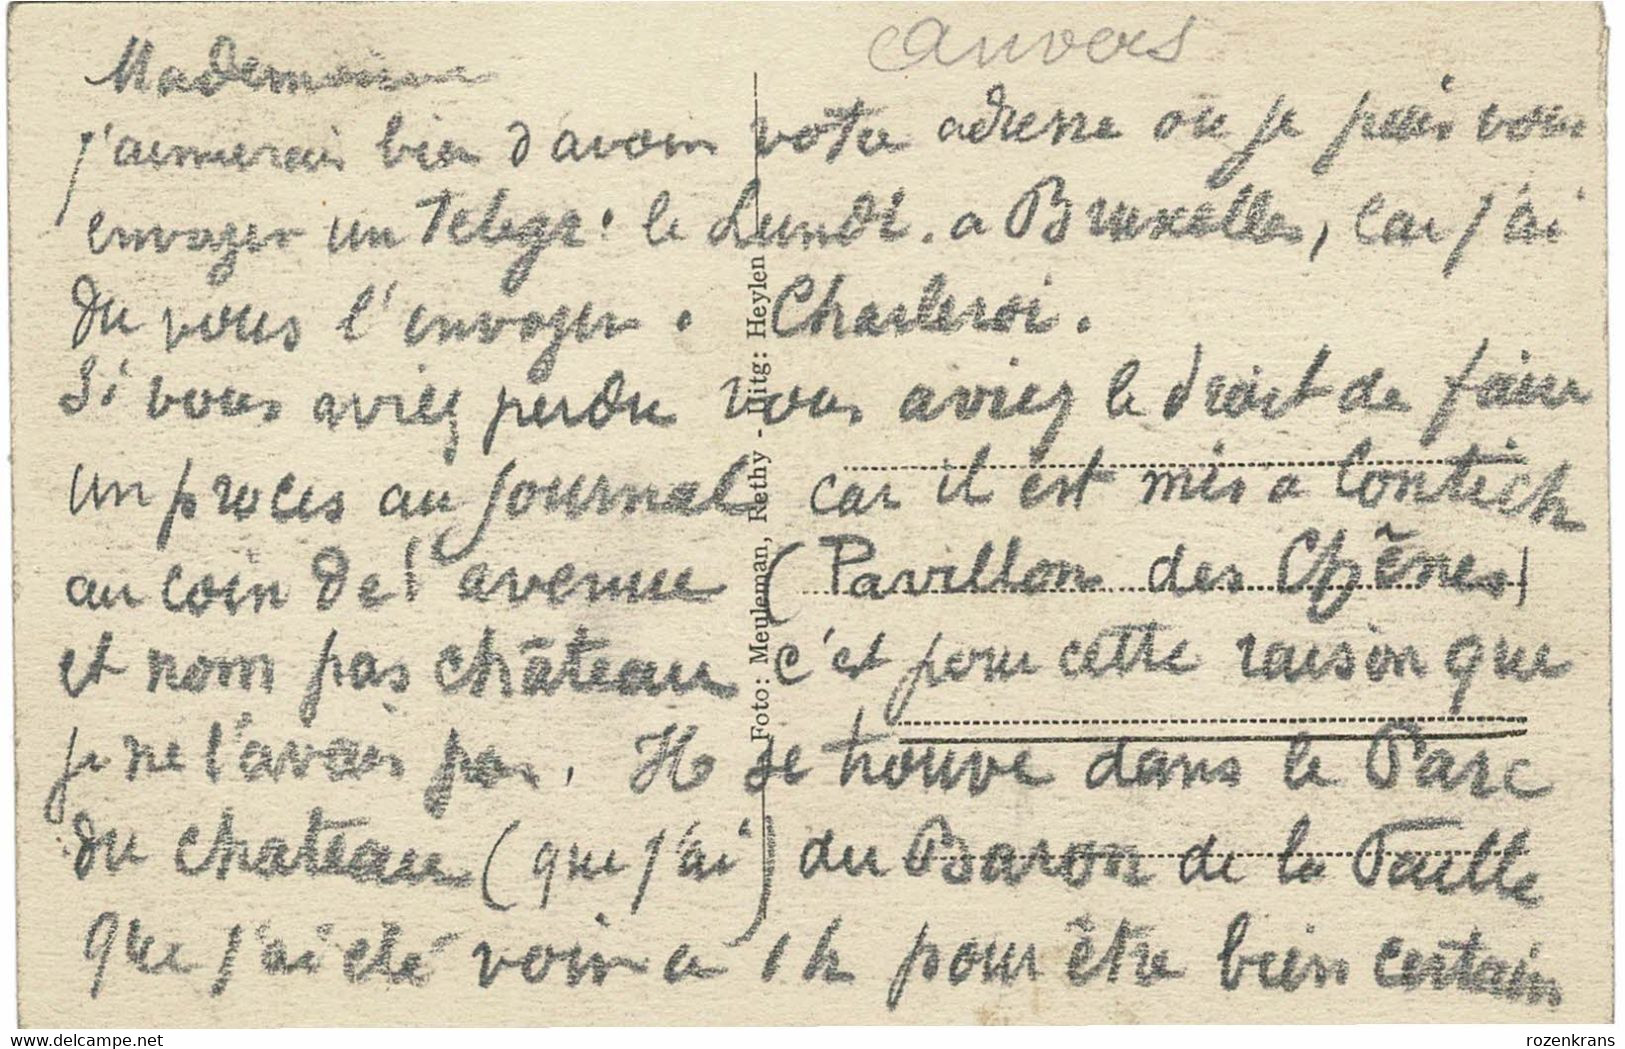 Anvers
Mademoiselle
j'aimerais bien d'avoir votre adresse ou je puis vous
envoyer un Telegr: le Lundi. a Bruxelles, car j'ai
du vous l'envoyer. Charleroi.
Si vous aviez perdu vous aviez le droit de faire
un proces au journal car il est mis a Contich
au coin de l'avenue (Pavillon des Chênes)
et nom pas château c'et pour cette raison que
je ne l'avais pas. Il se trouve dans le Parc
du chateau (que j'ai) du Baron de la Faille
que j'ai été voir a 1h pour être bien certain
Foto: Meuleman, Rethy - Uitg: Heylen
delcampe.net
rozenkrans